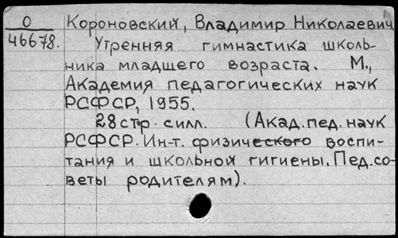 О
46678.
Короновский, Владимир Николаевич
Утренняя гимнастика школь-
ника младшего возраста. М.,
Академия педагогических наук
РСФСР, 1955.
28 стр. с илл. (Акад. пед. наук
РСФСР. Ин-т. физического воспи-
тания и школьной гигиены. Пед. со-
веты родителям).